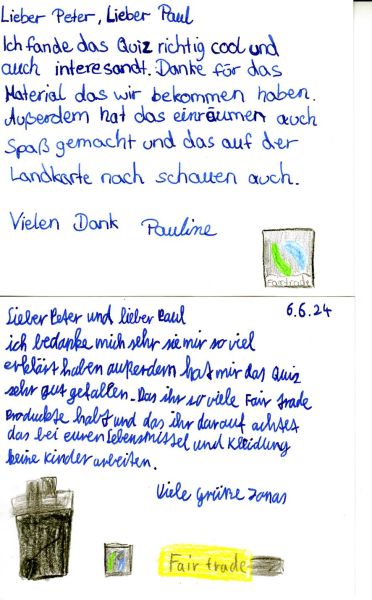 Lieber Peter, Lieber Paul
Ich fande das Quiz richtig cool und
auch interesandt. Danke für das
Material das wir bekommen haben.
Außerdem hat das einräumen auch
Spaß gemacht und das auf der
Landkarte nach schauen auch.
Vielen Dank Pauline
Fairtrade
6.6.24
Lieber Peter und lieber Paul
ich bedanke mich sehr sie mir so viel
erklärt haben außerdem hat mir das Quiz
sehr gut gefallen. Das ihr so viele Fair trade
Produckte habt und das ihr darauf achtet
das bei euren Lebensmittel und Kleidung
keine Kinder arbeiten.
Viele Grüße Jonas
Fair trade